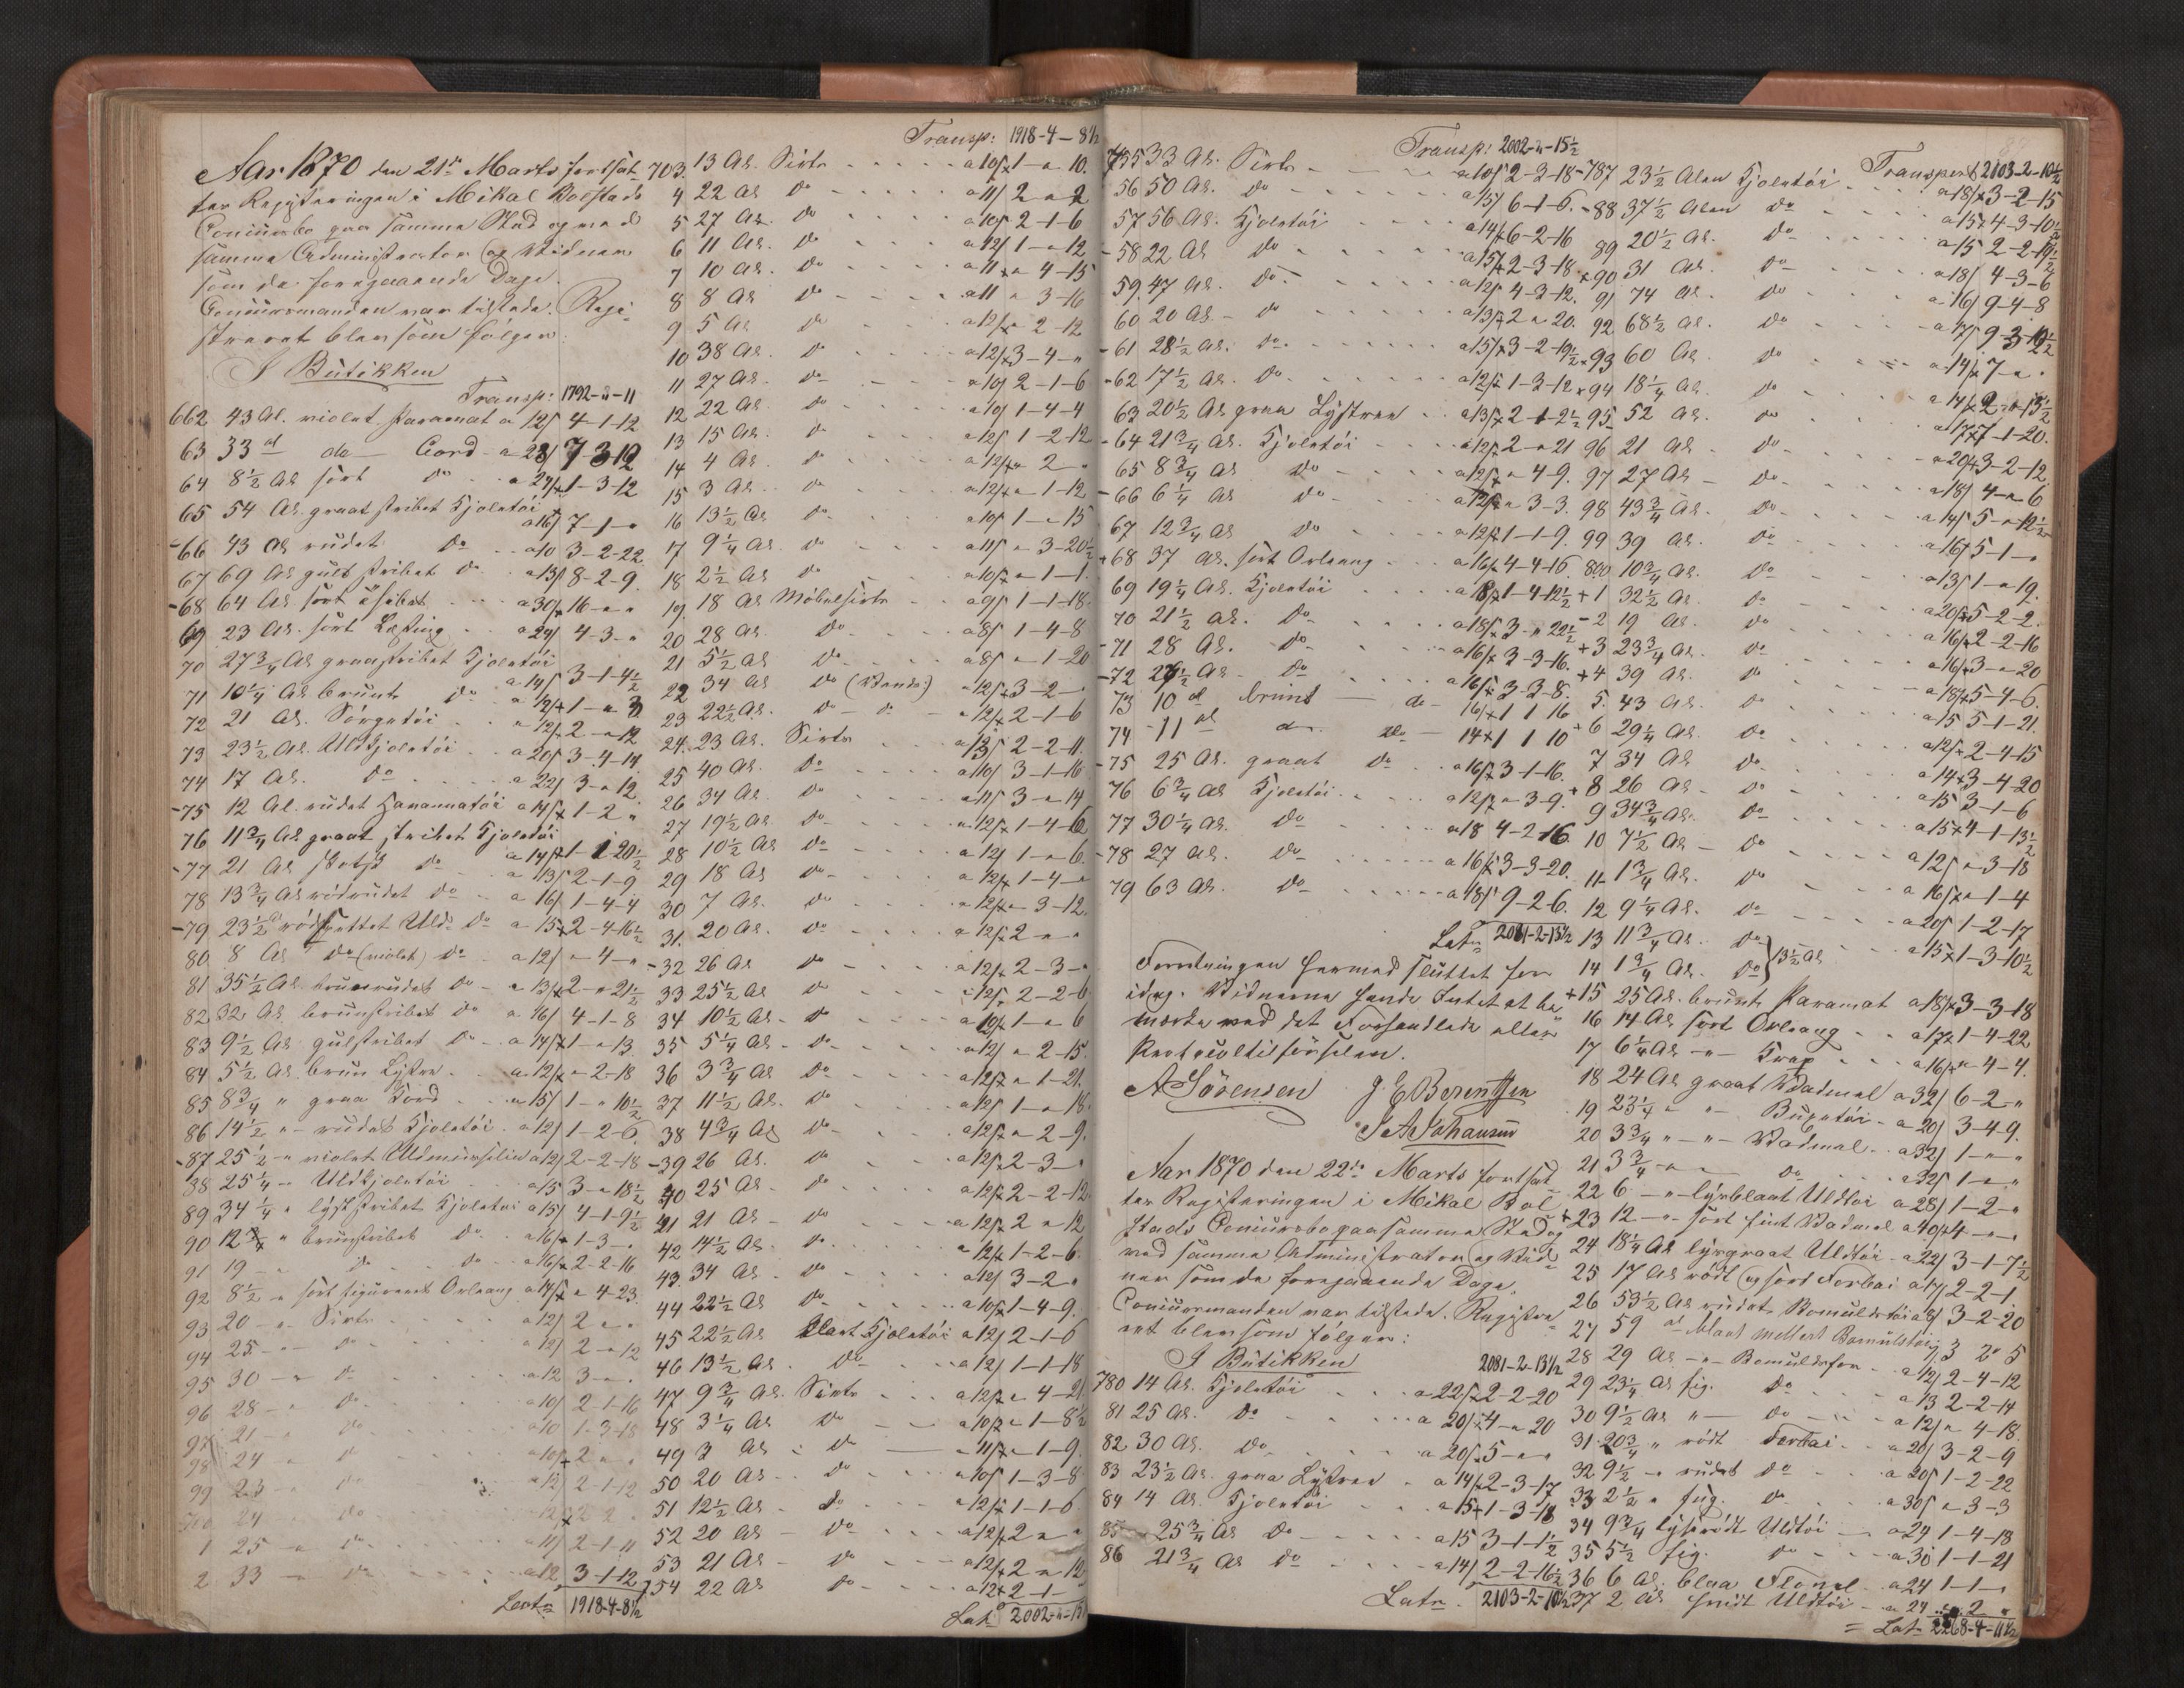 Aar 1870 den 21de Marts fortsat-
tes Registeringen i Mikal Bolstads
Concursbo paa samme Sted og med
samme Administrator og Vidner
som de foregaaende Dage.
Concursmanden var tilstede. Regi-
streret blev som følger:
I Butikken
Transp: 1792-"-11
662 43 Al. violet Paramat a 12/ 4-1-12
63 33 al do Cord a 28/ 7 3 12
64 8½ Al sort do a 24/ 1-3-12
65 54 Al. graat stribet Kjoletøi a 16/ 7-1-"
66 43 Al rudet do a 10 3-2-22
67 69 Al gult stribet do a 13/ 8-2-9
68 64 Al sort a 30/ 16-"-"
69 23 Al. sort Lasting a 24/ 4-3-"
70 27¾ Al graastribet Kjoletøi a 14/ 3-1-4½
71 10¼ Al brunt do
72 21 Al. Sørgetøi a 12/ 2-"-12
73 23½ Al. Uldkjoletøi a 20/ 3-4-14
74 17 Al. do a 22/ 3-"-12
75 12 Al. rudet a 14/ 1-2-"
76 11¾ Al graat stribet Kjoletøi
77 21 Al skotsk do a 13/ 2-1-9
78 13¾ Al rødrudet do a 16/ 1-4-4
79 23½ do a 15 2-4-16½
80 8 Al do (violet) do a 12/ "-4-"
81 35½ Al brunrudet do
82 32 Al brunstribet do a 16/ 4-1-8
83 9½ Al gulstribet do a 14/ 1-"-13
84 5½ Al. brun Lystre a 12/ "-2-18
85 8¾ " graa Cord a 15/ 1-"-10½
86 14½ " rudet Kjoletøi a 12/ 1-2-6
87 25½ " violet a 12/ 2-2-18
88 25¼ " Uldkjoletøi a 15 3-"-18½
89 34¼ " lyst stribet Kjoletøi a 15/ 4-1-9½
90 12¾ " brunstribet do a 16/ 1-3-"
91 19 " do do a 16/ 2-2-16
92 8½ " sort figureret Orleang a 14/ "-4-23
93 20 " Sirts a 12/ 2-"-"
94 25 " do a 12/ 2-"-12
95 30 " do a 12 3-"-"
96 28 " do a 10/ 2-1-16
97 21 " do a 10 1-3-18
98 24 " do a 10/ 2-"-"
99 23 " do a 12/ 2-1-12
700 24 " do
1 25 " do a 11/ 2-1-11
2 33 " do a 12 3-1-12
Lats 1918-4-8½
Transp: 1918-4-8½
703. 13 Al. Sirts a 10/ 1-"-10.
4 22 Al do a 11/ 2-"-2
5 27 Al. do a 10/ 2-1-6
6 11 Al. do a 12/ 1-"-12
7 10 Al. do a 11 "-4-15
8 8 Al do a 11 "-3-16
9 5 Al do a 12/ "-2-12
10 38 Al. do a 12/ 3-4-"
11 27 Al. do a 10/ 2-1-6
12 22 Al. do a 10/ 1-4-4
13 15 Al. do a 12/ 1-2-12
14 4 Al. do a 12/ "-2-"
15 3 Al. do a 12/ "-1-12
16 13½ Al do a 10/ 1-"-15
17 9¼ Al. do a 11/ "-3-20½
18 2½ Al do a 10/ "-1-1
19 18 Al Möbelsirts a 9/ 1-1-18
20 28 Al. do a 8/ 1-4-8
21 5½ Al do a 8/ "-1-20
22 34 Al do a 12/ 3-2-"
23 22½ Al. do - do a 12/ 2-1-6
24. 23 Al. Sirts 2-2-11
25 40 Al. do a 10/ 3-1-16
26 34 Al. do a 11/ 3-"-14
27 19½ Al. do a 12/ 1-4-6
28 10½ Al do a 12/ 1-"-6
29 18 Al do a 12/ 1-4-"
30 7 Al. do a 12/ "-3-12
31. 20 Al. do a 12/ 2-"-"
32 26 Al do a 12/ 2-3-"
33 25½ Al do a 12/ 2-2-6
34 10½ Al. do 1-"-6
35 5¼ Al. do a 12/ "-2-15
36 3¾ Al do a 12/ "-1-21
37 11½ Al. do a 12/ 1-"-18
38 4¾ Al do a 12/ "-2-9
39 26 Al. do a 12/ 2-3-"
40 25 Al. do a 12/ 2-2-12
41 21 Al do a 12/ 2-"-12
42 14½ Al. do a 12/ 1-2-6
43. 34 Al do a 12/ 3-2-"
44 22½ Al do a 10/ 1-4-9
45 22½ Al blaat Kjoletøi a 12/ 2-1-6
46 13½ Al. do a 12/ 1-1-18
47 9¾ Al. Sirts a 12/ "-4-21
48 3¼ Al do a 10/ "-1-8½
49 3 Al do a 11/ "-1-9
50 20 Al do a 10/ 1-3-8
51 12½ Al do a 12/ 1-1-6
52 20 Al do a 12/ 2-"-"
53 21 Al do a 12/ 2-"-12
754 22 Al do a 12 2-1-"
Lats 2002-"-15½
Transp: 2002-"-15½
755 33 Al. Sirts a 10/ 2-3-18
56 50 Al. do a 15/ 6-1-6
57 56 Al. Kjoletøi a 14/ 6-2-16
58 22 Al do a 15/ 2-3-18
59. 47 Al. do a 12/ 4-3-12
60 20 Al. do a 13/ 2-"-20
61 28½ Al. do a 15/ 3-2-19½
62 17½ Al. do a 12/ 1-3-12
63 20½ Al graa Lystre a 13/ 2-1-2½
64 21¾ Al. Kjoletøi a 12/ 2-"-21
65 8¾ Al do a 12/ "-4-9
66 6¼ Al do a 12/ "-3-3
67 12¾ Al do a 12/ 1-1-9
68 37 Al. sort Orleang a 16/ 4-4-16
69 19¼ Al. Kjoletøi 1-4-12½
70 21½ Al. do a 18/ 3-"-22½
71 28 Al. do a 16/ 3-3-16
72 do a 16/ 3-3-8
73 10 al brunt do 16/ 1 1 16
74 11 al do do 14 1 1 10
75 25 Al. graat do a 16/ 3-1-16
76 6¾ Al Kjoletøi a 12/ "-3-9
77 30¼ Al. do a 18 4-2-16
78 27 Al. do a 16/ 3-3-20
79 63 Al. do a 18/ 9-2-6
Lats 2081-2-13½
Forretningen hermed sluttet for
idag. Vidnerne havde Intet at be-
mærke ved det Forhandlede eller
Protocoltilførselen.
A Sörensen J. E. Berentsen
J A Johansen
Aar 1870 den 22de Marts fortsat-
tes Registeringen i Mikal Bol-
stads Concursbo paa samme Sted og
ved samme Administrator og Vid-
ner som de foregaaende Dage.
Concursmanden var tilstede. Registre-
ret blev som følger:
I Butikken 2081-2-13½
780 14 Al. Kjoletøi a 22/ 2-2-20
81 25 Al. do a 20/ 4-"-20
82 30 Al. do a 20/ 5-"-"
83 23½ Al. graa Lystre a 14/ 2-3-17
84 14 Al. Kjoletøi a 15 1-3-18
85 25¾ Al do a 15 3-1-1½
86 21¾ Al do a 14/ 2-2-16½
Lats 2103-2-10½
Transport 2103-2-10½
787 23½ Alen Kjoletøi a 18/ 3-2-15
88 37½ Alen do a 15 4-3-10½
89 20½ Al. do a 15 2-2-19½
90 31 Al. do a 18/ 4-3-6
91 74 Al. do a 16/ 9-4-8
92 68½ Al. do
93 60 Al. do a 14/ 7-"-"
94 18¼ Al. do
95 52 Al. do a 17 7-1-20
96 21 Al do a 20 3-2-12
97 27 Al do a 18/ 4-"-6
98 43¾ Al. do a 14/ 5-"-12½
99 39 Al. do a 16 5-1-"
800 10¾ Al. do a 13/ 1-"-19
1 32½ Al. do a 20/ 5-2-2
2 19 Al. do a 16/ 2-2-16
3 23¾ Al. do a 16/ 3-"-20
4 39 Al. do a 18/ 5-4-6
5. 43 Al. do a 15 5-1-21
6 29¼ Al. do a 12/ 2-4-15
7 34 Al do a 14 3-4-20
8 26 Al do a 15 3-1-6
9 34¾ Al. do a 15 4-1-13½
10 7½ Al do a 12/ "-3-18
11 1¾ Al. do a 16/ "-1-4
12 9¼ Al. do a 20/ 1-2-17
13 11¾ Al. do } 13½ Al a 15 1-3-10½
14 1¾ Al. do
15 25 Al. brunt Paramat a 18/ 3-3-18
16 14 Al sort Orleang a 17 1-4-22
17 6¼ Al " Krep a 16/ "-4-4
18 24 Al graat Vadmel a 32/ 6-2-"
19 23¼ " " Buxetøi a 20/ 3-4-9
20 3¾ " " Vadmel a 32/ 1-"-"
21 3¾ " do a 32/ 1-"-"
22 6 " lyseblaat Uldtøi a 28/ 1-2-"
23 12 " sort fint Vadmel a 40 4-"-"
24 18¼ Al lysegraat Uldtøi a 22/ 3-1-7½
25 17 Al rødt og sort Forbai a 17/ 2-2-1
26 53½ Al rudet Bomuldstøi a 8/ 3-2-20
27 59 al blaat Bomulstøi 3 2 5
28 29 Al " Bomuldsfor a 12/ 2-4-12
29 23¼ Al fig. do a 13 2-2-14
30 9½ Al " do a 12/ "-4-18
31. 20¾ " rødt Forbai a 20/ 3-2-9
32 9½ " rudet do a 20/ 1-2-22
33 2½ " fig. do a 30/ "-3-3
34 9¾ lyserødt Uldtøi a 24 1-4-18
35 5½ fig. do a 30 1-1-21
36 6 Al. blaa Flonel a 24 1-1-"
37 2 Al Uldtøi a 24 "-2-"
Lats 2268-4-11½